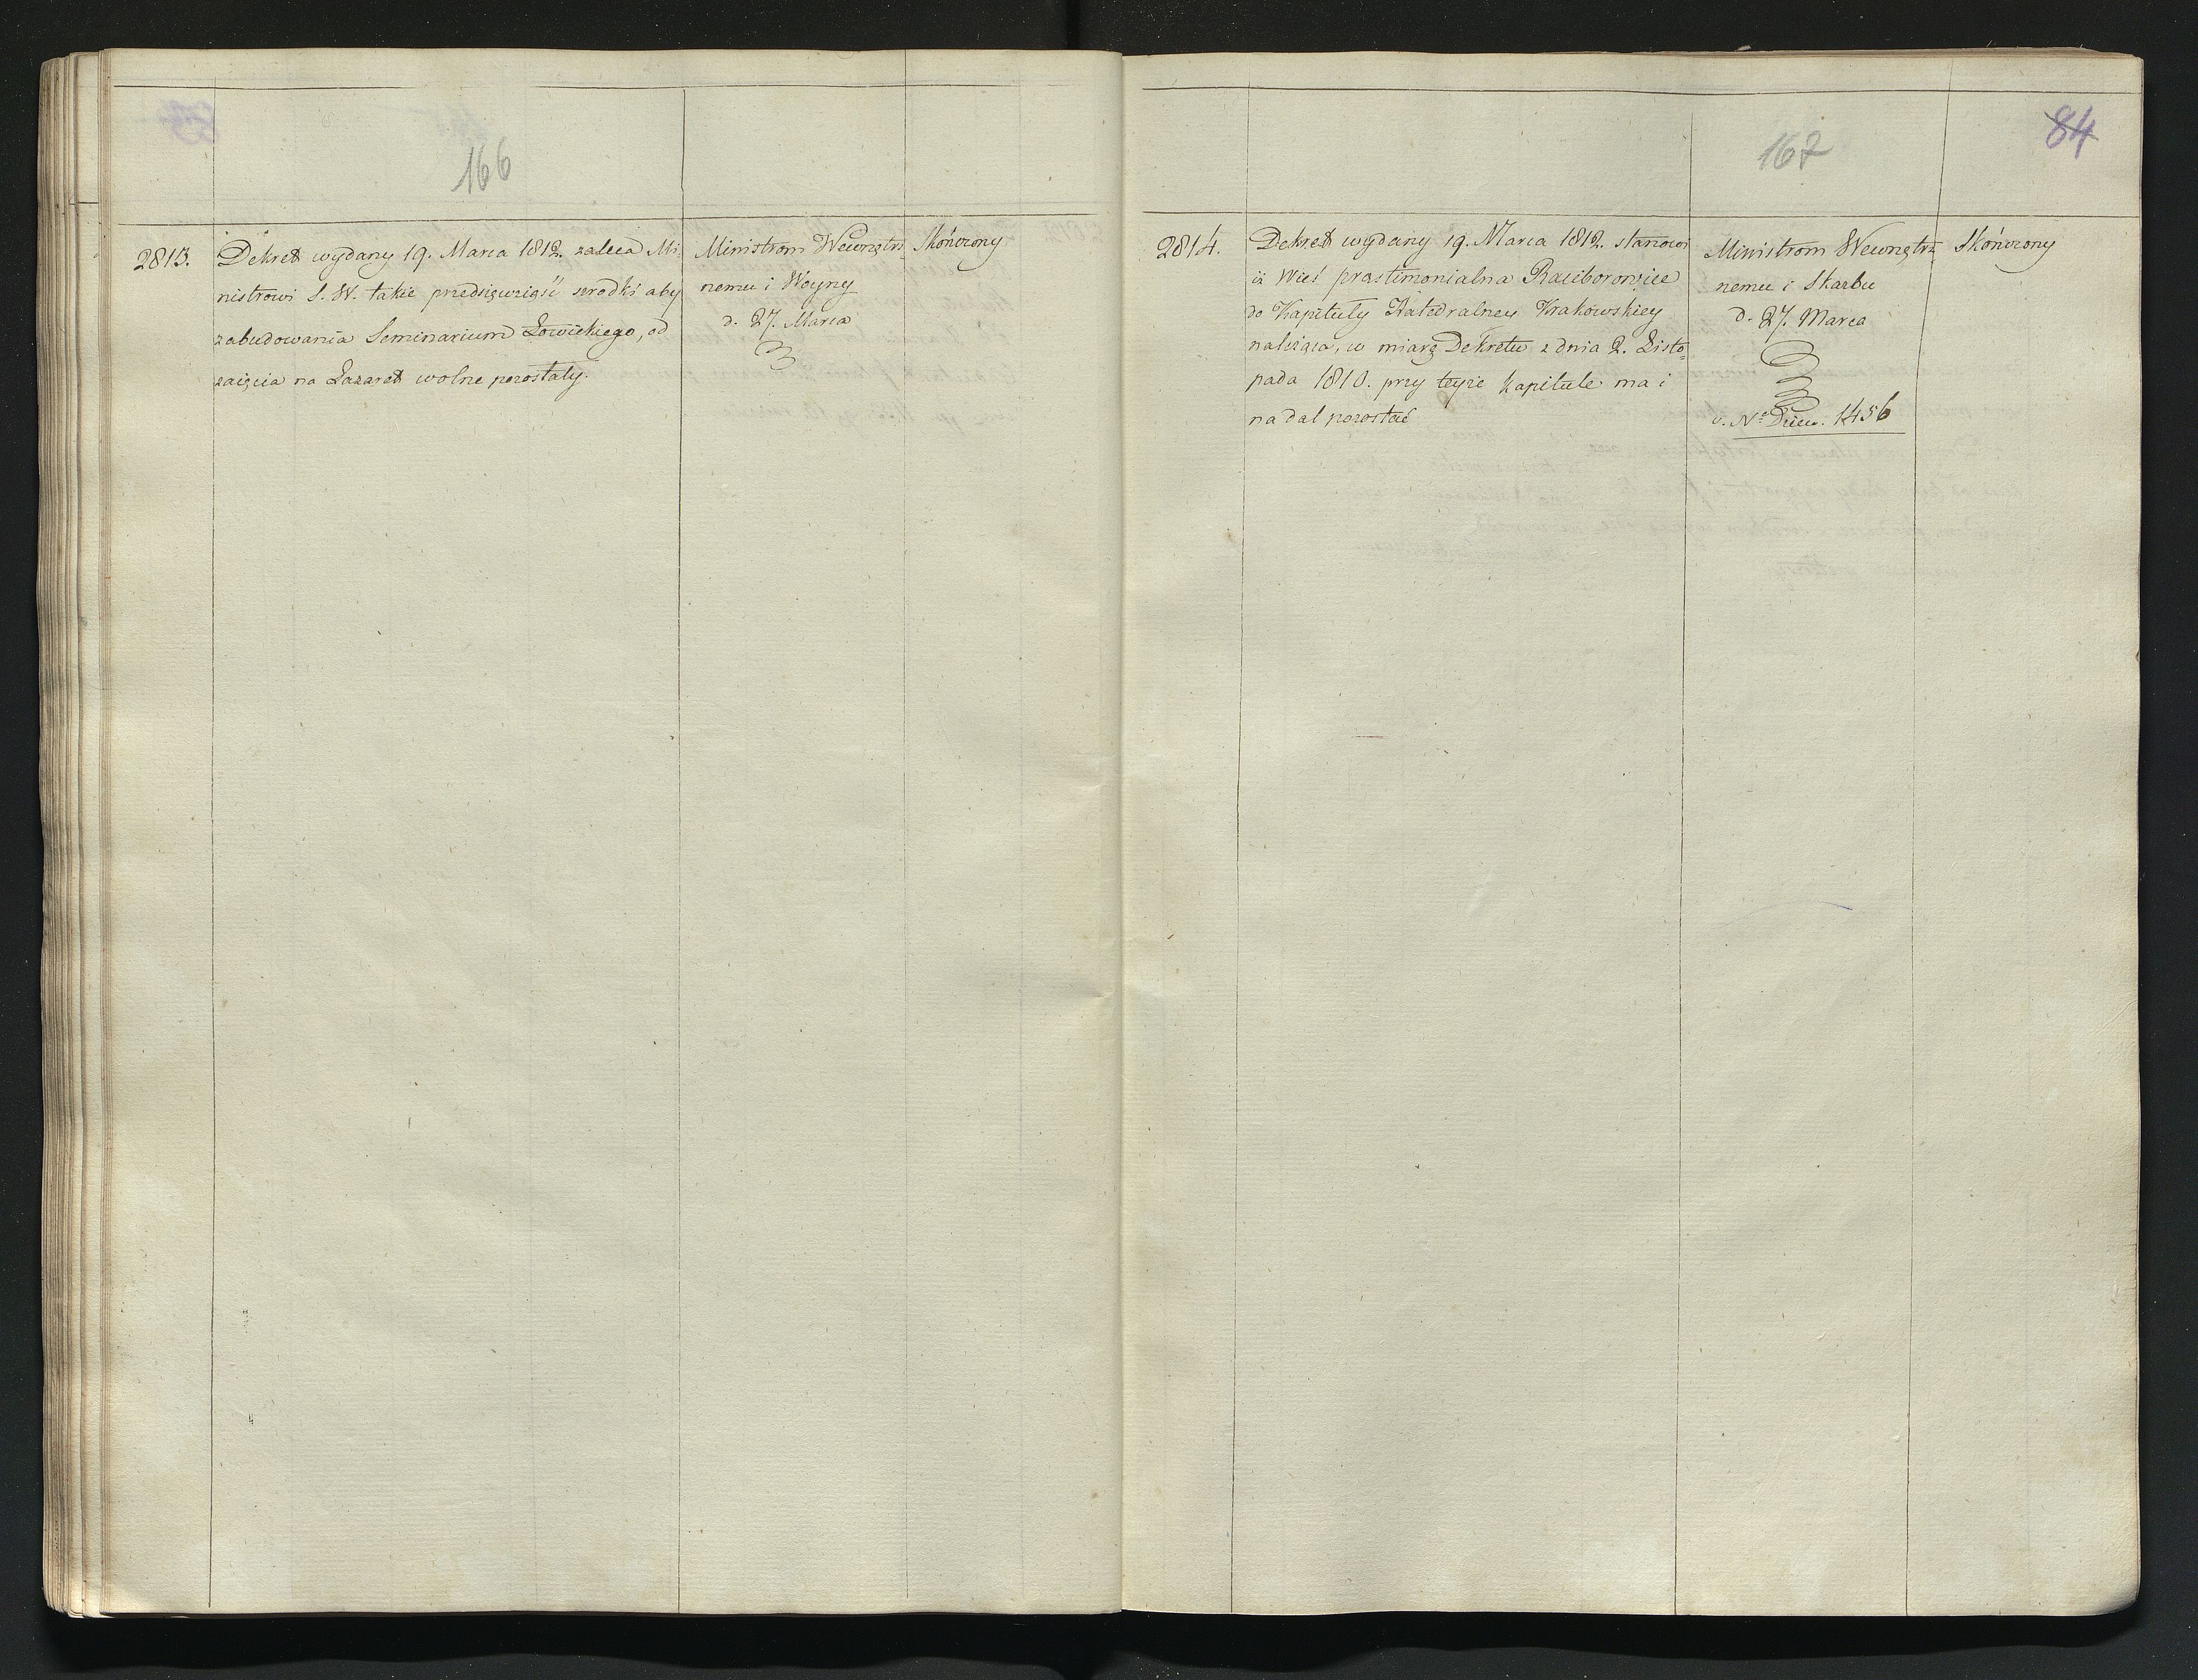 166
2813.
Dekret wydany 19. Marca 1812. zaleca Mi-
nistrowi S. W. takie przedsięwziąść szrodki aby
zabudowania Seminarium Łowickiego, od
zaięcia na Lazaret wolne pozostały.
Ministrom Wewnętrz.
nemu i Woyny
d. 27. Marca
Skończony
167
84
2814.
Dekret wydany 19. Marca 1812. stanowi
iż Wieś prastimonialna Raciborowice
do Kapituły Katedralney Krakowskiey
należąca, w miarę Dekretu z dnia 2. Listo=
pada 1810. przy teyże Kapitule ma i
nadal pozostać
Ministrom Wewnętrz
nemu i Skarbu
d. 27. Marca
v. Nº Dzien. 1456
Skończony